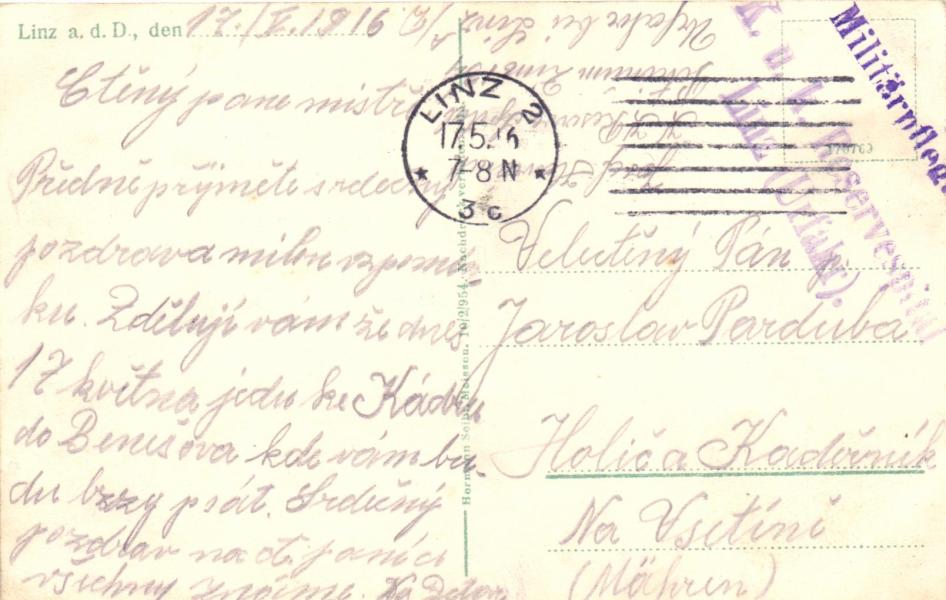 Linz a. d. D., den 17./V. 1916
Ctěný pane mistře
Předně přijměte srdečný
pozdrav a milou vzpomín
ku. Zděluji vám že dnes
17 května jedu ke Kádru
do Benešova kde vám bu-
du brzy psát. Srdečný
pozdrav na ct. paní i
všechny známé. Na Zdar
LINZ 2
17.5.16
7-8 N
3c
Militärpfleg
K. u. k. Reservespital
Linz (Urfahr).
170769
Urfahr bei Linz
Josef
Velectěný Pán p.
Jaroslav Parduba
Holič a Kadeřník
Na Vsetíně
(Mähren)
Herman Seibt, Meissen. 10/2/954. Nachdruck